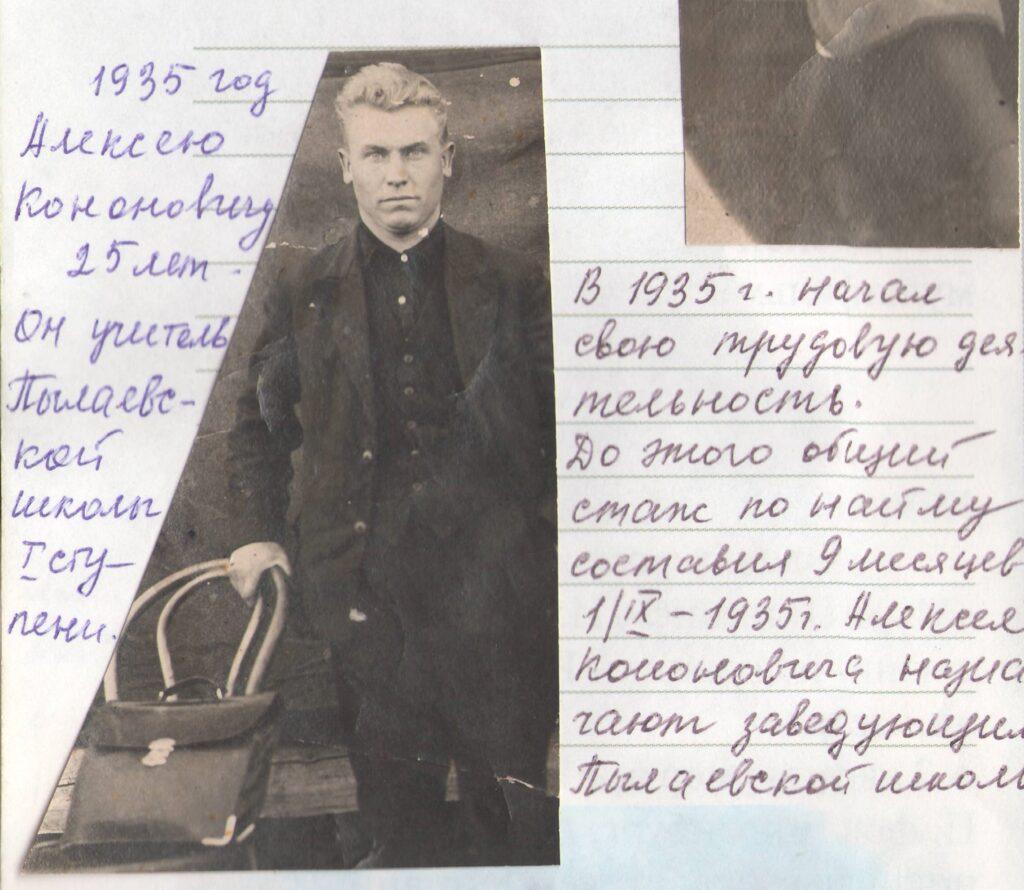 1935 год
Алексею
Кононовичу
25 лет.
Он учитель
Пылаевс-
кой
школы
I сту-
пени.
В 1935 г. начал
свою трудовую дея-
тельность.
До этого общий
стаж по найму
составил 9 месяцев
1/IX – 1935г. Алексея
Кононовича назна
чают заведующим
Пылаевской школы